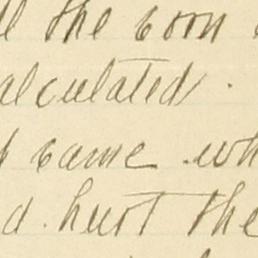 the corn
alculated.
came wh
d hurt the